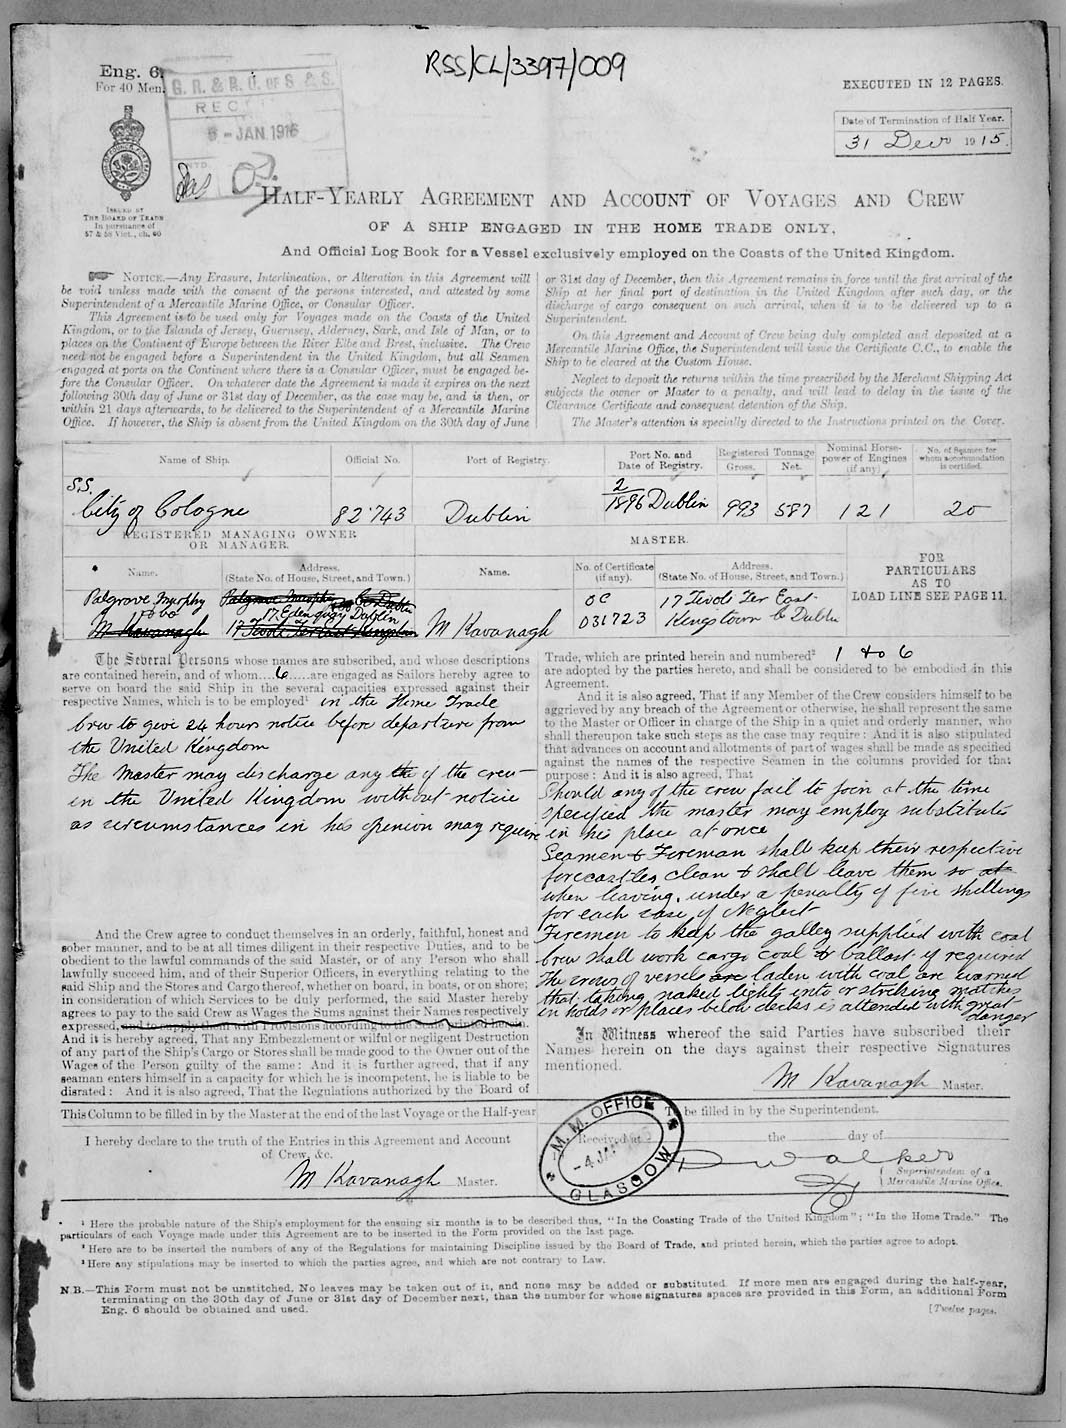 RSS/CL/3397/009
Eng. 6.
For 40 Men.
G. R. & R. O. OF S & S.
REC
6 - JAN. 1916
EXECUTED IN 12 PAGES.
Date of Termination of Half Year.
31 Decr 1915.
ISSUED BY
THE BOARD OF TRADE
In pursuance of
57 & 58 Vict., ch. 60
HALF-YEARLY AGREEMENT AND ACCOUNT OF VOYAGES AND CREW
OF A SHIP ENGAGED IN THE HOME TRADE ONLY,
And Official Log Book for a Vessel exclusively employed on the Coasts of the United Kingdom.
NOTICE.—Any Erasure, Interlineation, or Alteration in this Agreement will
be void unless made with the consent of the persons interested, and attested by some
Superintendent of a Mercantile Marine Office, or Consular Officer.
This Agreement is to be used only for Voyages made on the Coasts of the United
Kingdom, or to the Islands of Jersey, Guernsey, Alderney, Sark, and Isle of Man, or to
places on the Continent of Europe between the River Elbe and Brest, inclusive. The Crew
need not be engaged before a Superintendent in the United Kingdom, but all Seamen
engaged at ports on the Continent where there is a Consular Officer, must be engaged be-
fore the Consular Officer. On whatever date the Agreement is made it expires on the next
following 30th day of June or 31st day of December, as the case may be, and is then, or
within 21 days afterwards, to be delivered to the Superintendent of a Mercantile Marine
Office. If however, the Ship is absent from the United Kingdom on the 30th day of June
or 31st day of December, then this Agreement remains in force until the first arrival of the
Ship at her final port of destination in the United Kingdom after such day, or the
discharge of cargo consequent on such arrival, when it is to be delivered up to a
Superintendent.
On this Agreement and Account of Crew being duly completed and deposited at a
Mercantile Marine Office, the Superintendent will issue the Certificate C.C., to enable the
Ship to be cleared at the Custom House.
Neglect to deposit the returns within the time prescribed by the Merchant Shipping Act
subjects the owner or Master to a penalty, and will lead to delay in the issue of the
Clearance Certificate and consequent detention of the Ship.
The Master's attention is specially directed to the Instructions printed on the Cover.
Name of Ship. Official No. Port of Registry. Port No. and Date of Registry. Registered Tonnage Gross. Net. Nominal Horse-power of Engines (if any) No. of Seamen for whom accommodation is certified.
S.S. City of Cologne 82743 Dublin 2/1896 Dublin 993 587 121 20
REGISTERED MANAGING OWNER
OR MANAGER.
MASTER.
Name. Address. (State No. of House, Street, and Town.) Name. No. of Certificate (if any). Address. (State No. of House, Street, and Town.)
FOR
PARTICULARS
AS TO
LOAD LINE SEE PAGE 11.
Palgrave Murphy & Co
Palgrave Murphy Co Dublin
17 Eden quay Dublin
M Kavanagh
17 Tivoli Ter East Kingstown
M Kavanagh
OC
031723
17 Tivoli Ter East
Kingstown Co Dublin
The Several Persons whose names are subscribed, and whose descriptions
are contained herein, and of whom 6 are engaged as Sailors hereby agree to
serve on board the said Ship in the several capacities expressed against their
respective Names, which is to be employed¹ in the Home Trade
Crew to give 24 hours notice before departure from
the United Kingdom
The Master may discharge any the of the crew
in the United Kingdom without notice
as circumstances in his opinion may require
And the Crew agree to conduct themselves in an orderly, faithful, honest and
sober manner, and to be at all times diligent in their respective Duties, and to be
obedient to the lawful commands of the said Master, or of any Person who shall
lawfully succeed him, and of their Superior Officers, in everything relating to the
said Ship and the Stores and Cargo thereof, whether on board, in boats, or on shore;
in consideration of which Services to be duly performed, the said Master hereby
agrees to pay to the said Crew as Wages the Sums against their Names respectively
expressed, and to supply them with Provisions according to the Scale printed herein.
And it is hereby agreed, That any Embezzlement or wilful or negligent Destruction
of any part of the Ship's Cargo or Stores shall be made good to the Owner out of the
Wages of the Person guilty of the same: And it is further agreed, that if any
seaman enters himself in a capacity for which he is incompetent, he is liable to be
disrated: And it is also agreed, That the Regulations authorized by the Board of
Trade, which are printed herein and numbered² 1 to 6
are adopted by the parties hereto, and shall be considered to be embodied in this
Agreement.
And it is also agreed, That if any Member of the Crew considers himself to be
aggrieved by any breach of the Agreement or otherwise, he shall represent the same
to the Master or Officer in charge of the Ship in a quiet and orderly manner, who
shall thereupon take such steps as the case may require: And it is also stipulated
that advances on account and allotments of part of wages shall be made as specified
against the names of the respective Seamen in the columns provided for that
purpose: And it is also agreed, That
Should any of the crew fail to join at the time
specified the master may employ substitute
in his place at once
Seamen & Fireman shall keep their respective
forecastles clean & shall leave them so at
when leaving, under a penalty of five shillings
for each case of Neglect
Firemen to keep the galley supplied with coal
Crew shall work cargo coal & ballast if required
The crews of vessels are laden with coal are warned
that taking naked lights into or striking matches
in holds or places below decks is attended with great
danger
In Witness whereof the said Parties have subscribed their
Names herein on the days against their respective Signatures
mentioned.
M Kavanagh Master.
This Column to be filled in by the Master at the end of the last Voyage or the Half-year
I hereby declare to the truth of the Entries in this Agreement and Account
of Crew, &c.
M Kavanagh Master.
To be filled in by the Superintendent.
Received at the day of
M. M. OFFICE
- 4 JAN
GLASGOW
D Walker
Superintendent of a
Mercantile Marine Office.
¹ Here the probable nature of the Ship's employment for the ensuing six months is to be described thus, "In the Coasting Trade of the United Kingdom"; "In the Home Trade." The
particulars of each Voyage made under this Agreement are to be inserted in the Form provided on the last page.
² Here are to be inserted the numbers of any of the Regulations for maintaining Discipline issued by the Board of Trade, and printed herein, which the parties agree to adopt.
³ Here any stipulations may be inserted to which the parties agree, and which are not contrary to Law.
N.B.—This Form must not be unstitched. No leaves may be taken out of it, and none may be added or substituted. If more men are engaged during the half-year,
terminating on the 30th day of June or 31st day of December next, than the number for whose signatures spaces are provided in this Form, an additional Form
Eng. 6 should be obtained and used.
[Twelve pages.